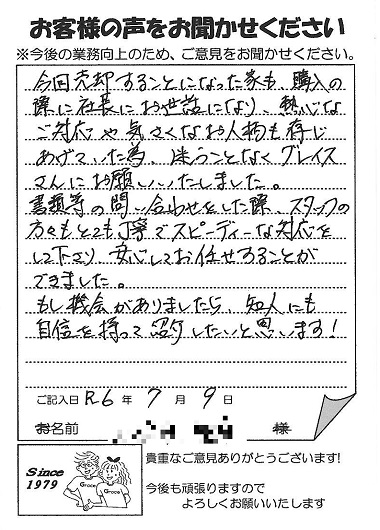 お客様の声をお聞かせください
※今後の業務向上のため、ご意見をお聞かせください。
今回売却することになった家も、購入の
際に社長にお世話になり、熱心な
ご対応や気さくなお人柄も存じ
あげていた為、迷うことなくグレイス
さんにお願いいたしました。
書類等の問い合わせをした際、スタッフの
方々もとても丁寧でスピーディーな対応を
して下さり、安心してお任せすることが
できました。
もし機会がありましたら、知人にも
自信を持って紹介したいと思います!
ご記入日 R6 年 7 月 9 日
お名前 様
貴重なご意見ありがとうございます!
今後も頑張りますので
よろしくお願いいたします
Since
1979
Grace
Grace